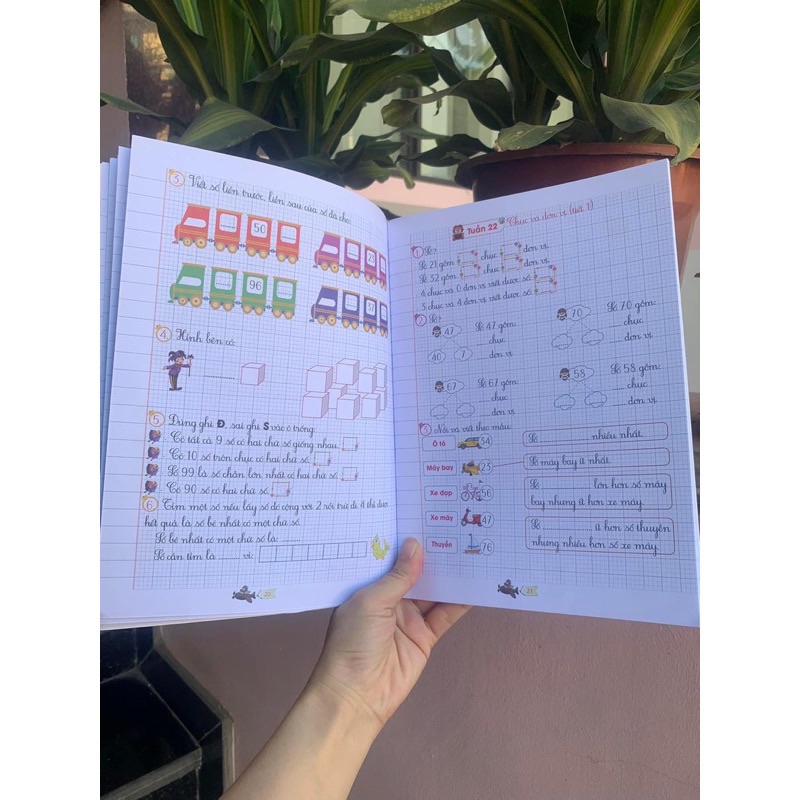 3 Viết số liền trước, liền sau của số đã cho:
50
23
96
57
4 Hình bên có:
............
5 Đúng ghi Đ, sai ghi S vào ô trống:
Có tất cả 9 số có hai chữ số giống nhau.
Có 10 số tròn chục có hai chữ số.
Số 99 là số chẵn lớn nhất có hai chữ số.
Có 90 số có hai chữ số.
6 Tìm một số nếu lấy số đó cộng với 2 rồi trừ đi 4 thì được
kết quả là số bé nhất có một chữ số.
Số bé nhất có một chữ số là: ..........
Số cần tìm là ........ vì:
20
Tuần 22 Chục và đơn vị (tiết 1)
1 Số?
Số 21 gồm chục đơn vị.
Số 52 gồm chục đơn vị.
4 chục và 0 đơn vị viết được số
5 chục và 4 đơn vị viết được số
2 Số?
47 Số 47 gồm:
.... chục
40 7 .... đơn vị
70 Số 70 gồm:
.... chục
.... đơn vị
67 Số 67 gồm:
.... chục
.... đơn vị
58 Số 58 gồm:
.... chục
.... đơn vị
3 Nối và viết theo mẫu:
Ô tô 54
Máy bay 25
Xe đạp 56
Xe máy 47
Thuyền 76
Số ............ nhiều nhất.
Số máy bay ít nhất.
Số ............ lớn hơn số máy
bay nhưng ít hơn xe máy.
Số ............ ít hơn số thuyền
nhưng nhiều hơn số xe máy.
21